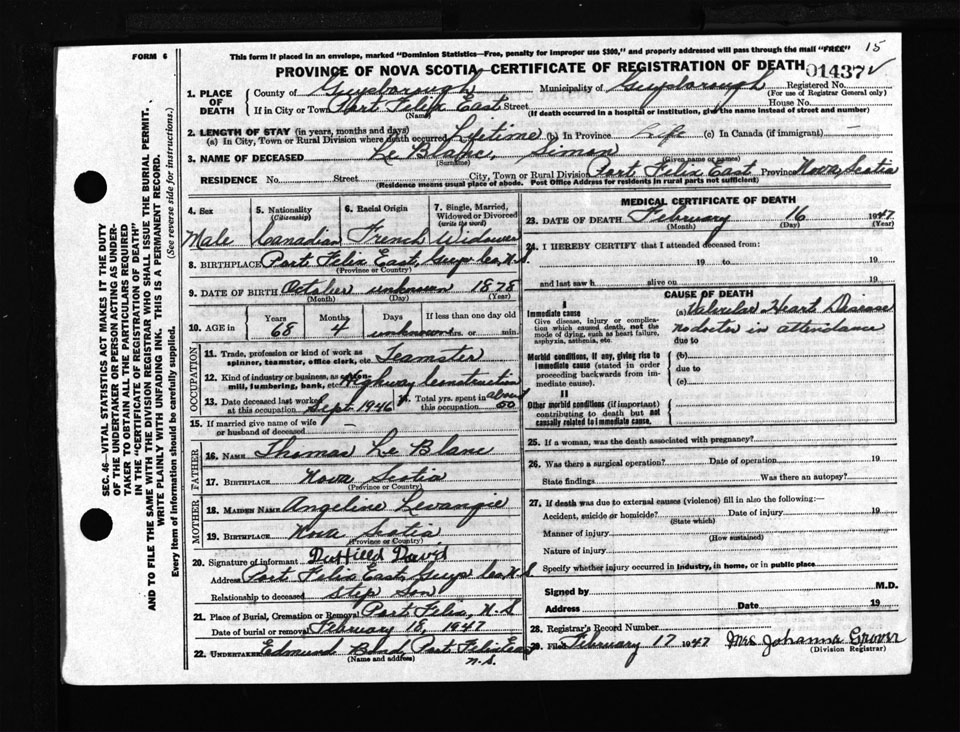 FORM 6
This form if placed in an envelope, marked "Dominion Statistics—Free, penalty for improper use $300," and properly addressed will pass through the mail "FREE"
15
PROVINCE OF NOVA SCOTIA—CERTIFICATE OF REGISTRATION OF DEATH
01437
1. PLACE OF DEATH
County of Guysborough Municipality of Guysborough Registered No.
(For use of Registrar General only)
If in City or Town Port Felix East Street House No.
(Name) (If death occurred in a hospital or institution, give the name instead of street and number)
2. LENGTH OF STAY (in years, months and days)
(a) In City, Town or Rural Division where death occurred Lifetime (b) In Province Life (c) In Canada (if immigrant) —
3. NAME OF DECEASED Le Blanc, Simon
(Surname) (Given name or names)
RESIDENCE No. Street City, Town or Rural Division Port Felix East Province Nova Scotia
(Residence means usual place of abode. Post Office Address for residents in rural parts not sufficient)
4. Sex Male
5. Nationality (Citizenship) Canadian
6. Racial Origin French
7. Single, Married, Widowed or Divorced (write the word) Widower
8. BIRTHPLACE Port Felix East, Guys Co, N.S.
(Province or Country)
9. DATE OF BIRTH October unknown 1878
(Month) (Day) (Year)
10. AGE in Years 68 Months 4 Days unknown If less than one day old hrs. or min.
OCCUPATION
11. Trade, profession or kind of work as spinner, teamster, office clerk, etc. Teamster
12. Kind of industry or business, as cotton-mill, lumbering, bank, etc. Highway Construction
13. Date deceased last worked at this occupation Sept 1946
14. Total yrs. spent in this occupation about 50
15. If married give name of wife or husband of deceased —
FATHER
16. NAME Thomas Le Blanc
17. BIRTHPLACE Nova Scotia
(Province or Country)
MOTHER
18. MAIDEN NAME Angeline Levangie
19. BIRTHPLACE Nova Scotia
(Province or Country)
20. Signature of informant Duffield David
Address Port Felix East, Guys Co, N.S
Relationship to deceased Step Son
21. Place of Burial, Cremation or Removal Port Felix, N.S
Date of burial or removal February 18, 1947
22. UNDERTAKER Edmund Bond, Port Felix East
(Name and address) N.S.
MEDICAL CERTIFICATE OF DEATH
23. DATE OF DEATH February 16 1947
(Month) (Day) (Year)
24. I HEREBY CERTIFY that I attended deceased from:
19 to 19
and last saw h alive on 19
CAUSE OF DEATH
I
Immediate cause
Give disease, injury or complication which caused death, not the mode of dying, such as heart failure, asphyxia, asthenia, etc.
(a) Valvular Heart Disease
no doctor in attendance
due to
Morbid conditions, if any, giving rise to immediate cause (stated in order proceeding backwards from immediate cause).
(b)
due to
(c)
II
Other morbid conditions (if important) contributing to death but not causally related to immediate cause.
25. If a woman, was the death associated with pregnancy?
26. Was there a surgical operation? Date of operation 19
State findings Was there an autopsy?
27. If death was due to external causes (violence) fill in also the following:—
Accident, suicide or homicide? Date of injury 19
(State which)
Manner of injury
(How sustained)
Nature of injury
Specify whether injury occurred in industry, in home, or in public place
Signed by M.D.
Address Date 19
28. Registrar's Record Number
29. Filed February 17 1947 Mrs Johanna Grover
(Division Registrar)
SEC. 46—VITAL STATISTICS ACT MAKES IT THE DUTY
OF THE UNDERTAKER OR PERSON ACTING AS UNDER-
TAKER TO OBTAIN ALL THE PARTICULARS REQUIRED
IN THE "CERTIFICATE OF REGISTRATION OF DEATH"
AND TO FILE THE SAME WITH THE DIVISION REGISTRAR WHO SHALL ISSUE THE BURIAL PERMIT.
WRITE PLAINLY WITH UNFADING INK. THIS IS A PERMANENT RECORD.
Every item of information should be carefully supplied. (See reverse side for instructions.)